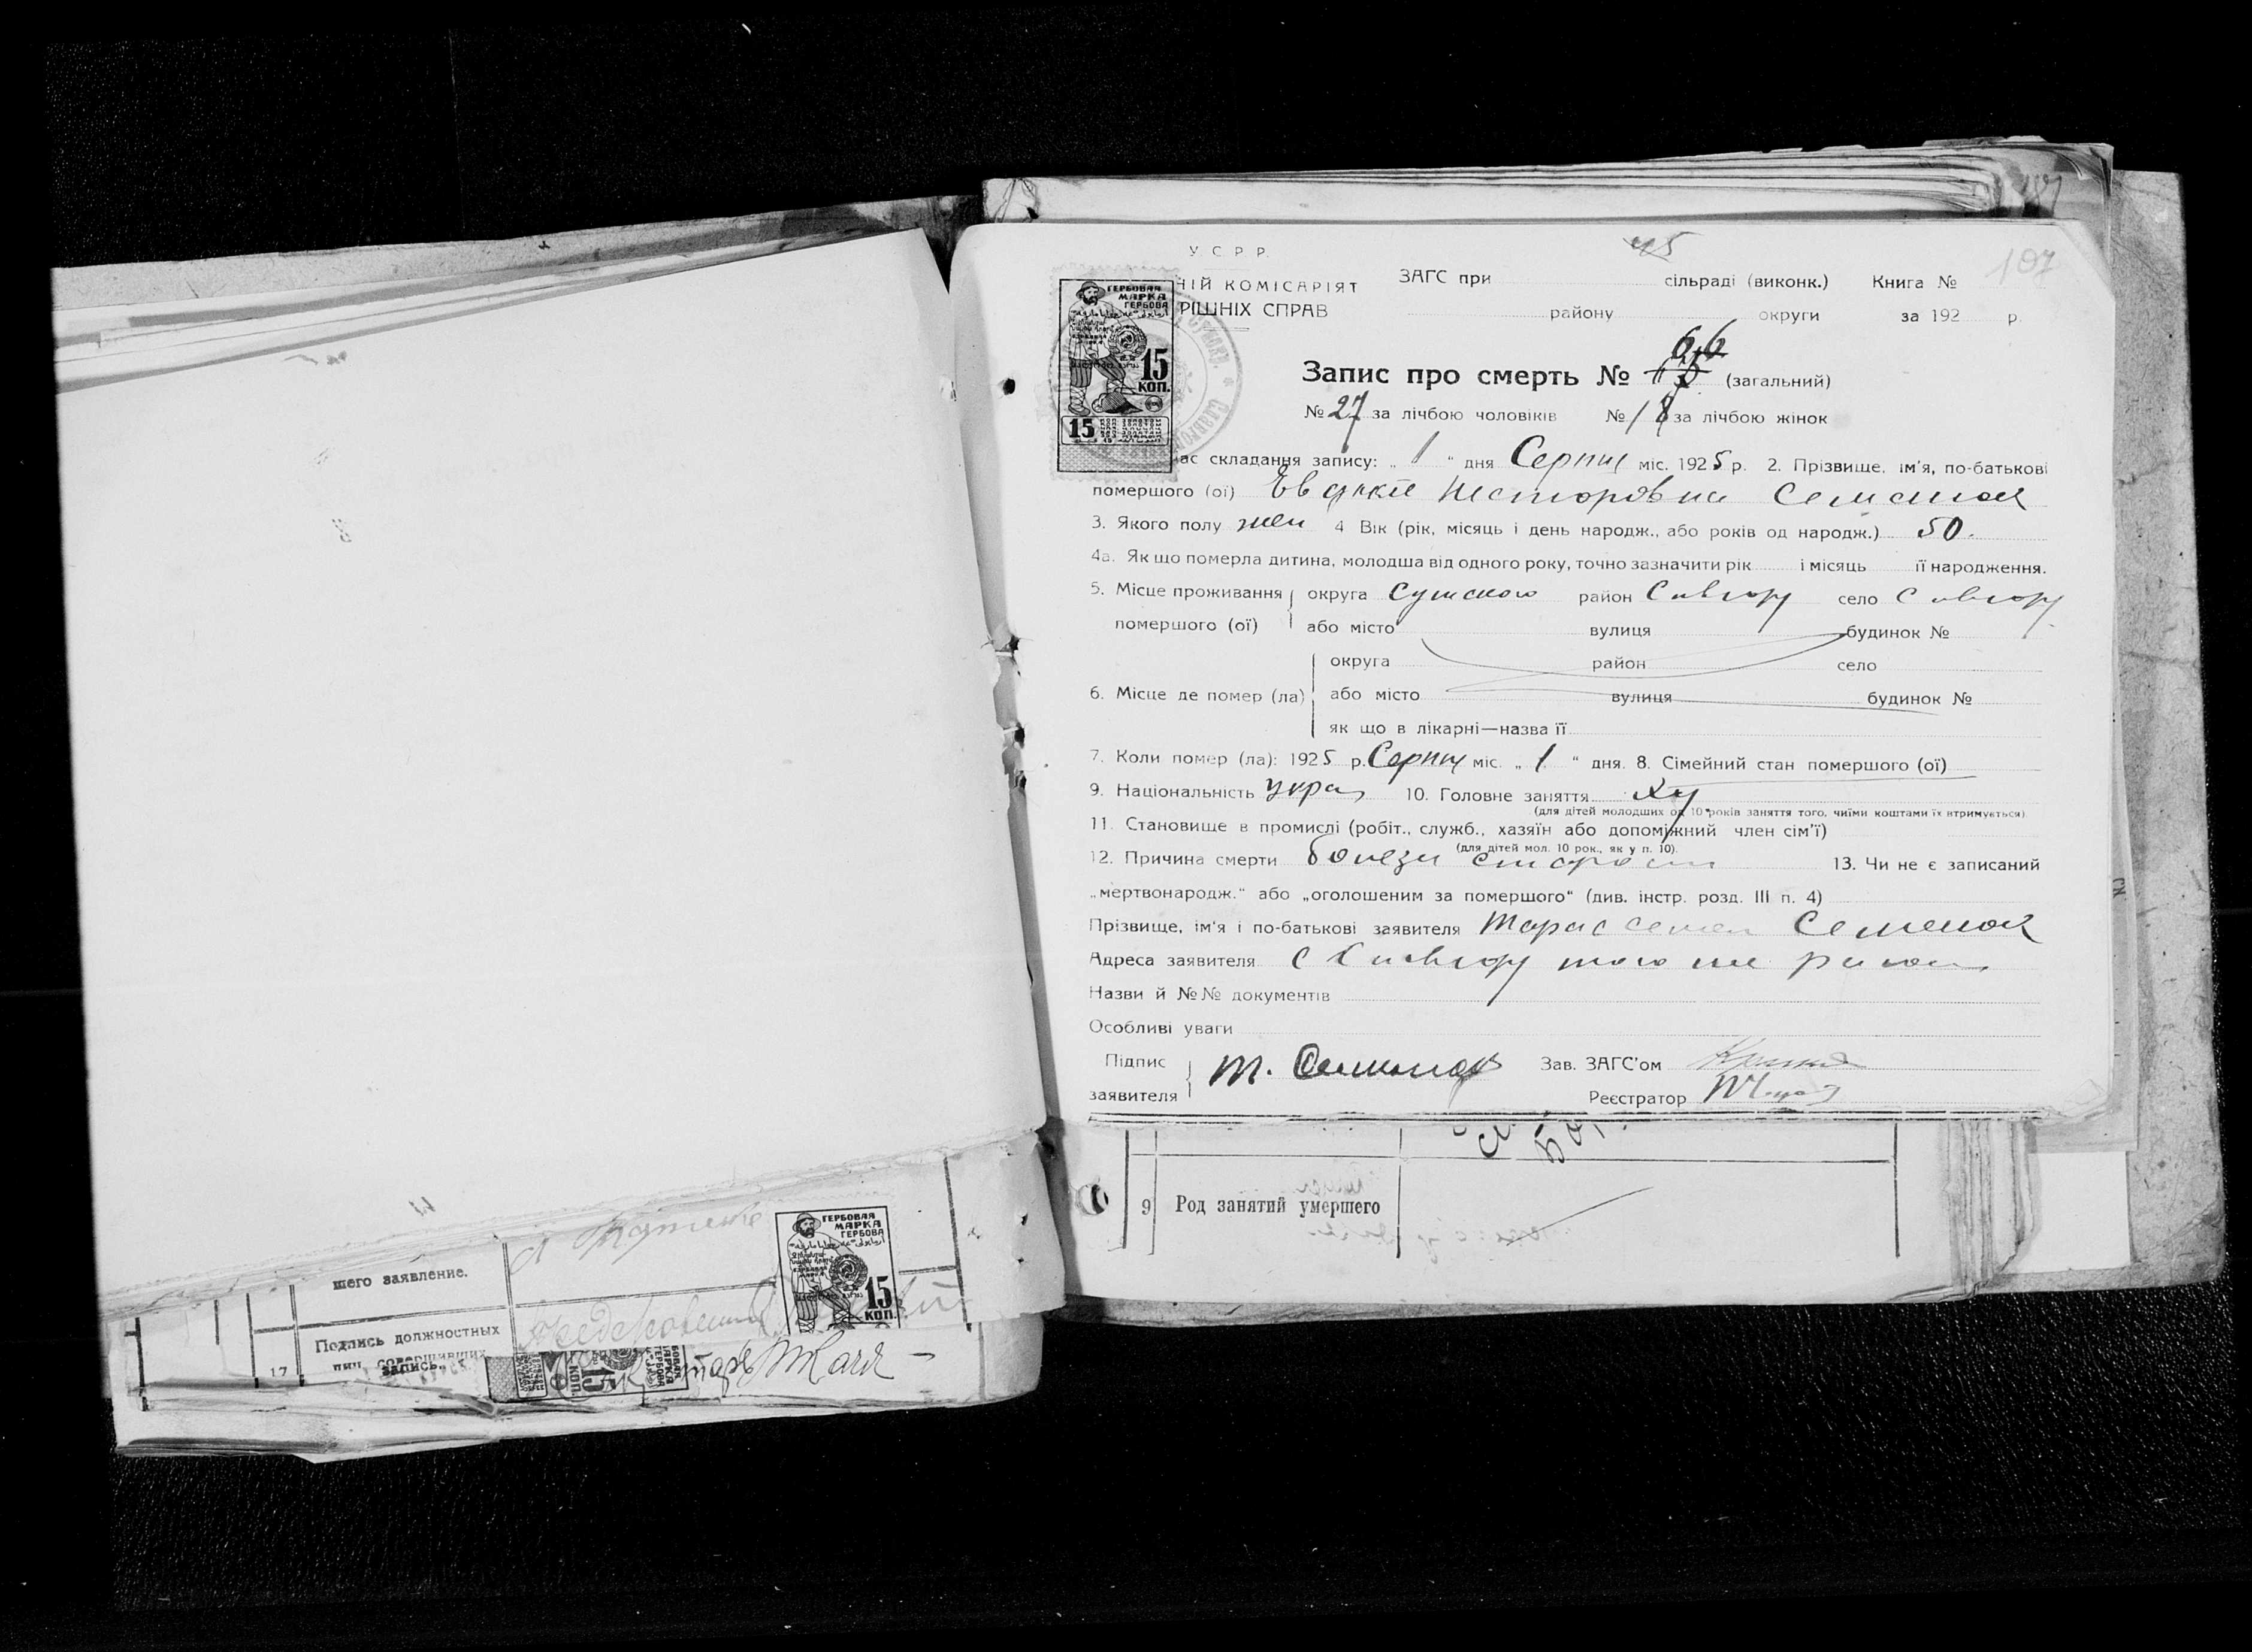 У С Р Р.
45
107
НІЙ КОМІСАРІЯТ
РІШНІХ СПРАВ
ЗАГС при сільраді (виконк.) Книга №
району округи за 192 р.
ГЕРБОВАЯ
МАРКА
ГЕРБОВА
15
КОП.
15
66
Запис про смерть № (загальний)
№ 27 за лічбою чоловіків № 18 за лічбою жінок
ас складання запису: „ 1 “ дня Серпня міс. 1925 р. 2. Прізвище, ім'я, по-батькові
помершого (ої) Евдокія Несторовна Семеная
3. Якого полу жен 4 Вік (рік, місяць і день народж., або років од народж.) 50.
4а. Як що померла дитина, молодша від одного року, точно зазначити рік і місяць її народження.
5. Місце проживання округа Сумского район Славгор село Славгор
помершого (ої) або місто вулиця будинок №
округа район село
6. Місце де помер (ла) або місто вулиця будинок №
як що в лікарні—назва її
7. Коли помер (ла): 1925 р. Серпня міс. „ 1 “ дня. 8. Сімейний стан помершого (ої)
9. Національність укра 10. Головне заняття
(для дітей молодших од 10 років заняття того, чиїми коштами їх втримується)
11. Становище в промислі (робіт., служб., хазяїн або допоміжний член сім'ї)
(для дітей мол. 10 рок., як у п. 10).
12. Причина смерти болези старости 13. Чи не є записаний
„мертвонародж.“ або „оголошеним за помершого“ (див. інстр. розд. III п. 4)
Прізвище, ім'я і по-батькові заявителя Тарас Семен
Адреса заявителя с Славгор того же района
Назви й №№ документів
Особливі уваги
Підпис Зав. ЗАГС'ом
заявителя Т. Реєстратор
9 Род занятий умершего
шего заявление.
17 Подпись должностных
лиц, совершивших
запись.
ГЕРБОВАЯ
МАРКА
ГЕРБОВА
15
КОП.
15
КОП.